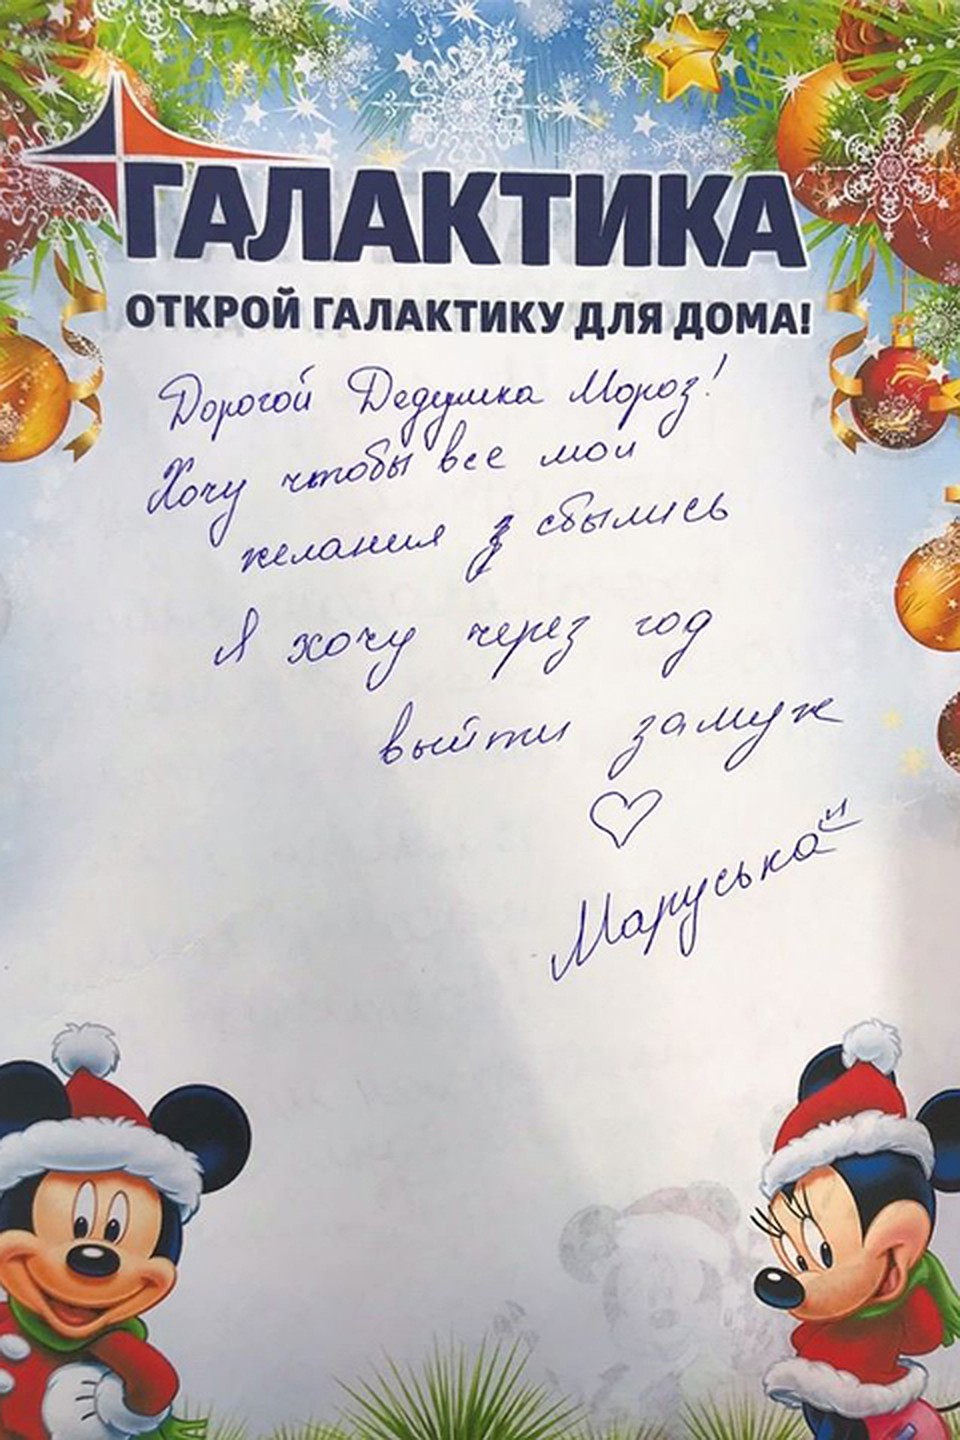 ГАЛАКТИКА
ОТКРОЙ ГАЛАКТИКУ ДЛЯ ДОМА!
Дорогой Дедушка Мороз!
Хочу чтобы все мои
желания сбылись
Я хочу через год
выйти замуж
Маруська